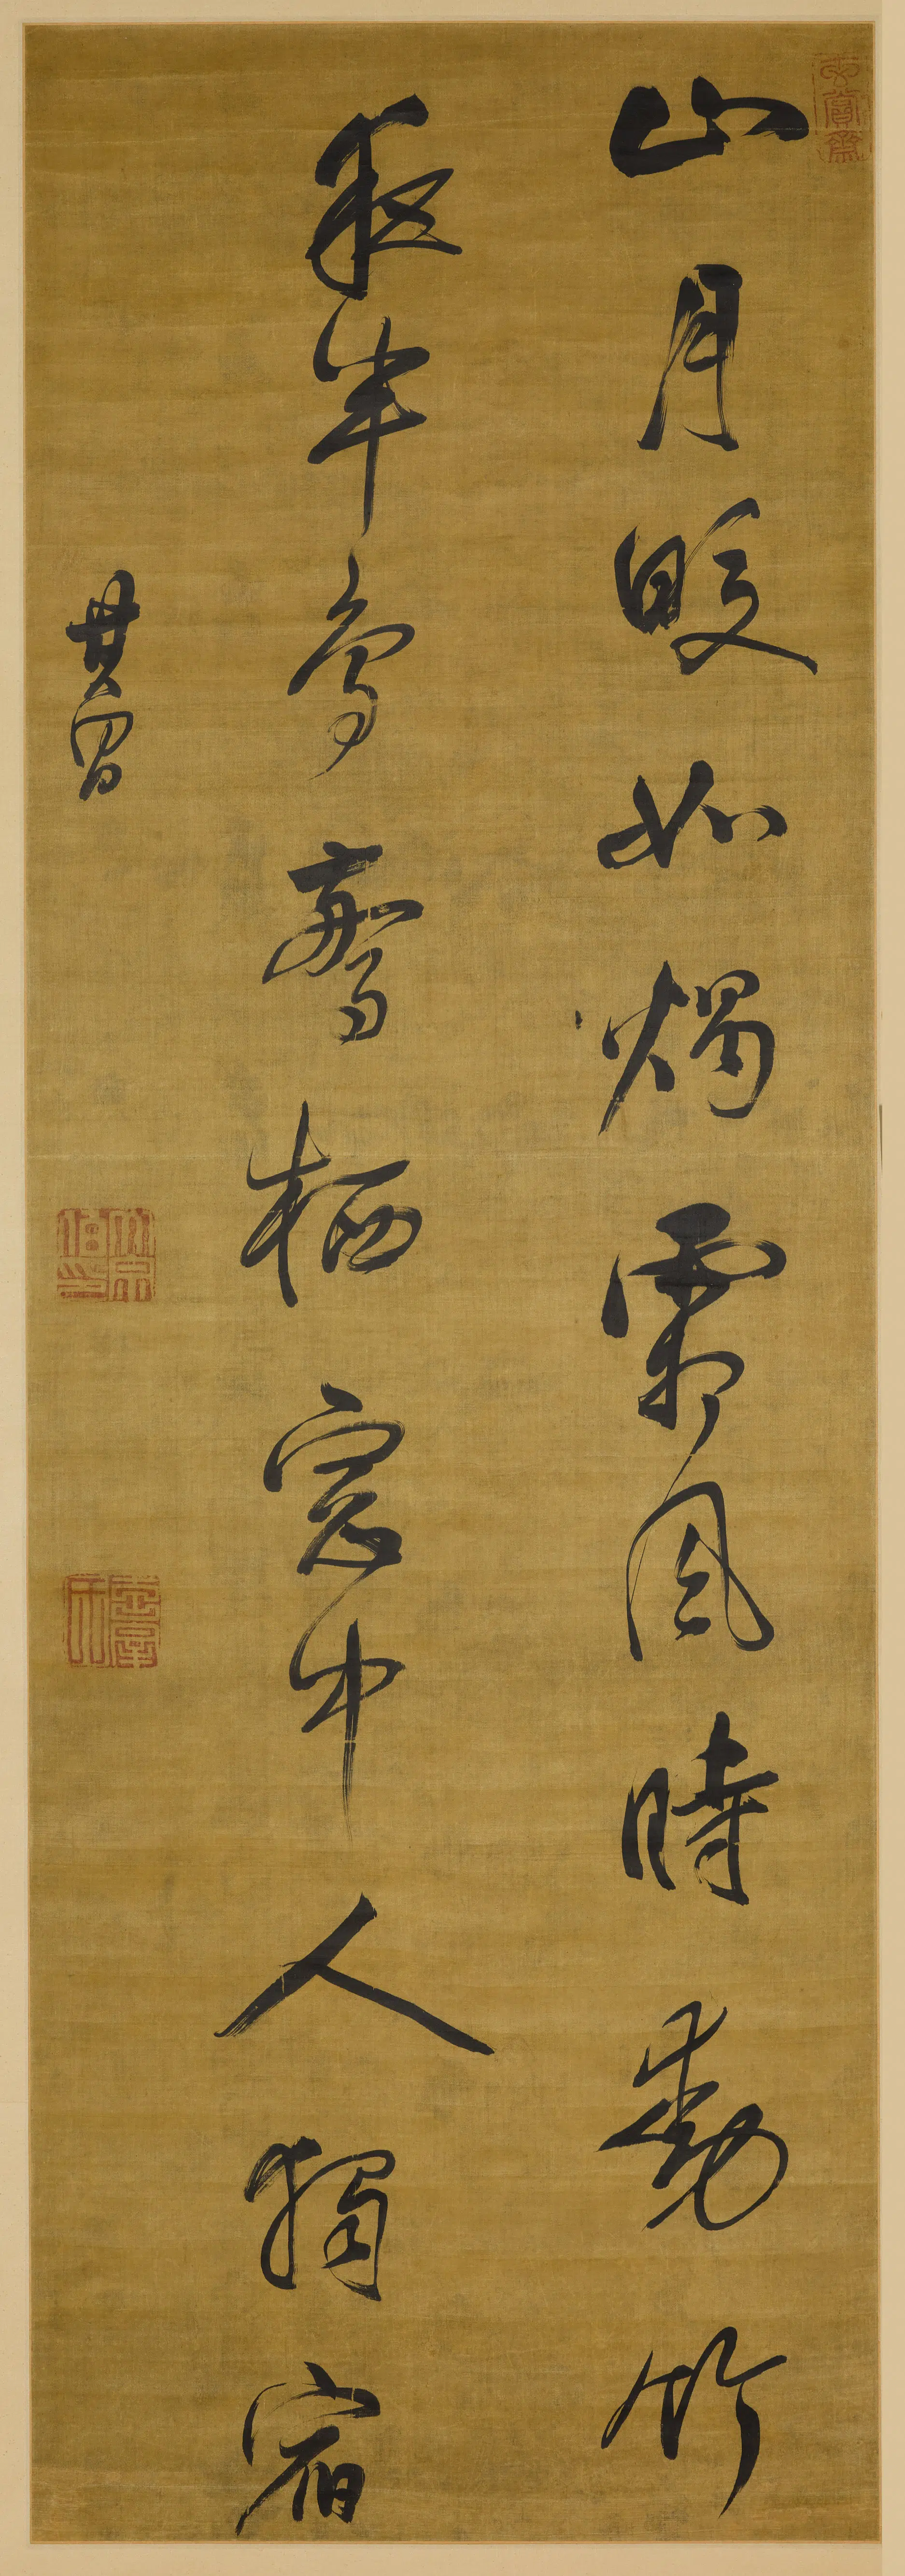 山月皎如燭霜風時動竹
夜半鳥驚栖窓中人獨宿
其昌